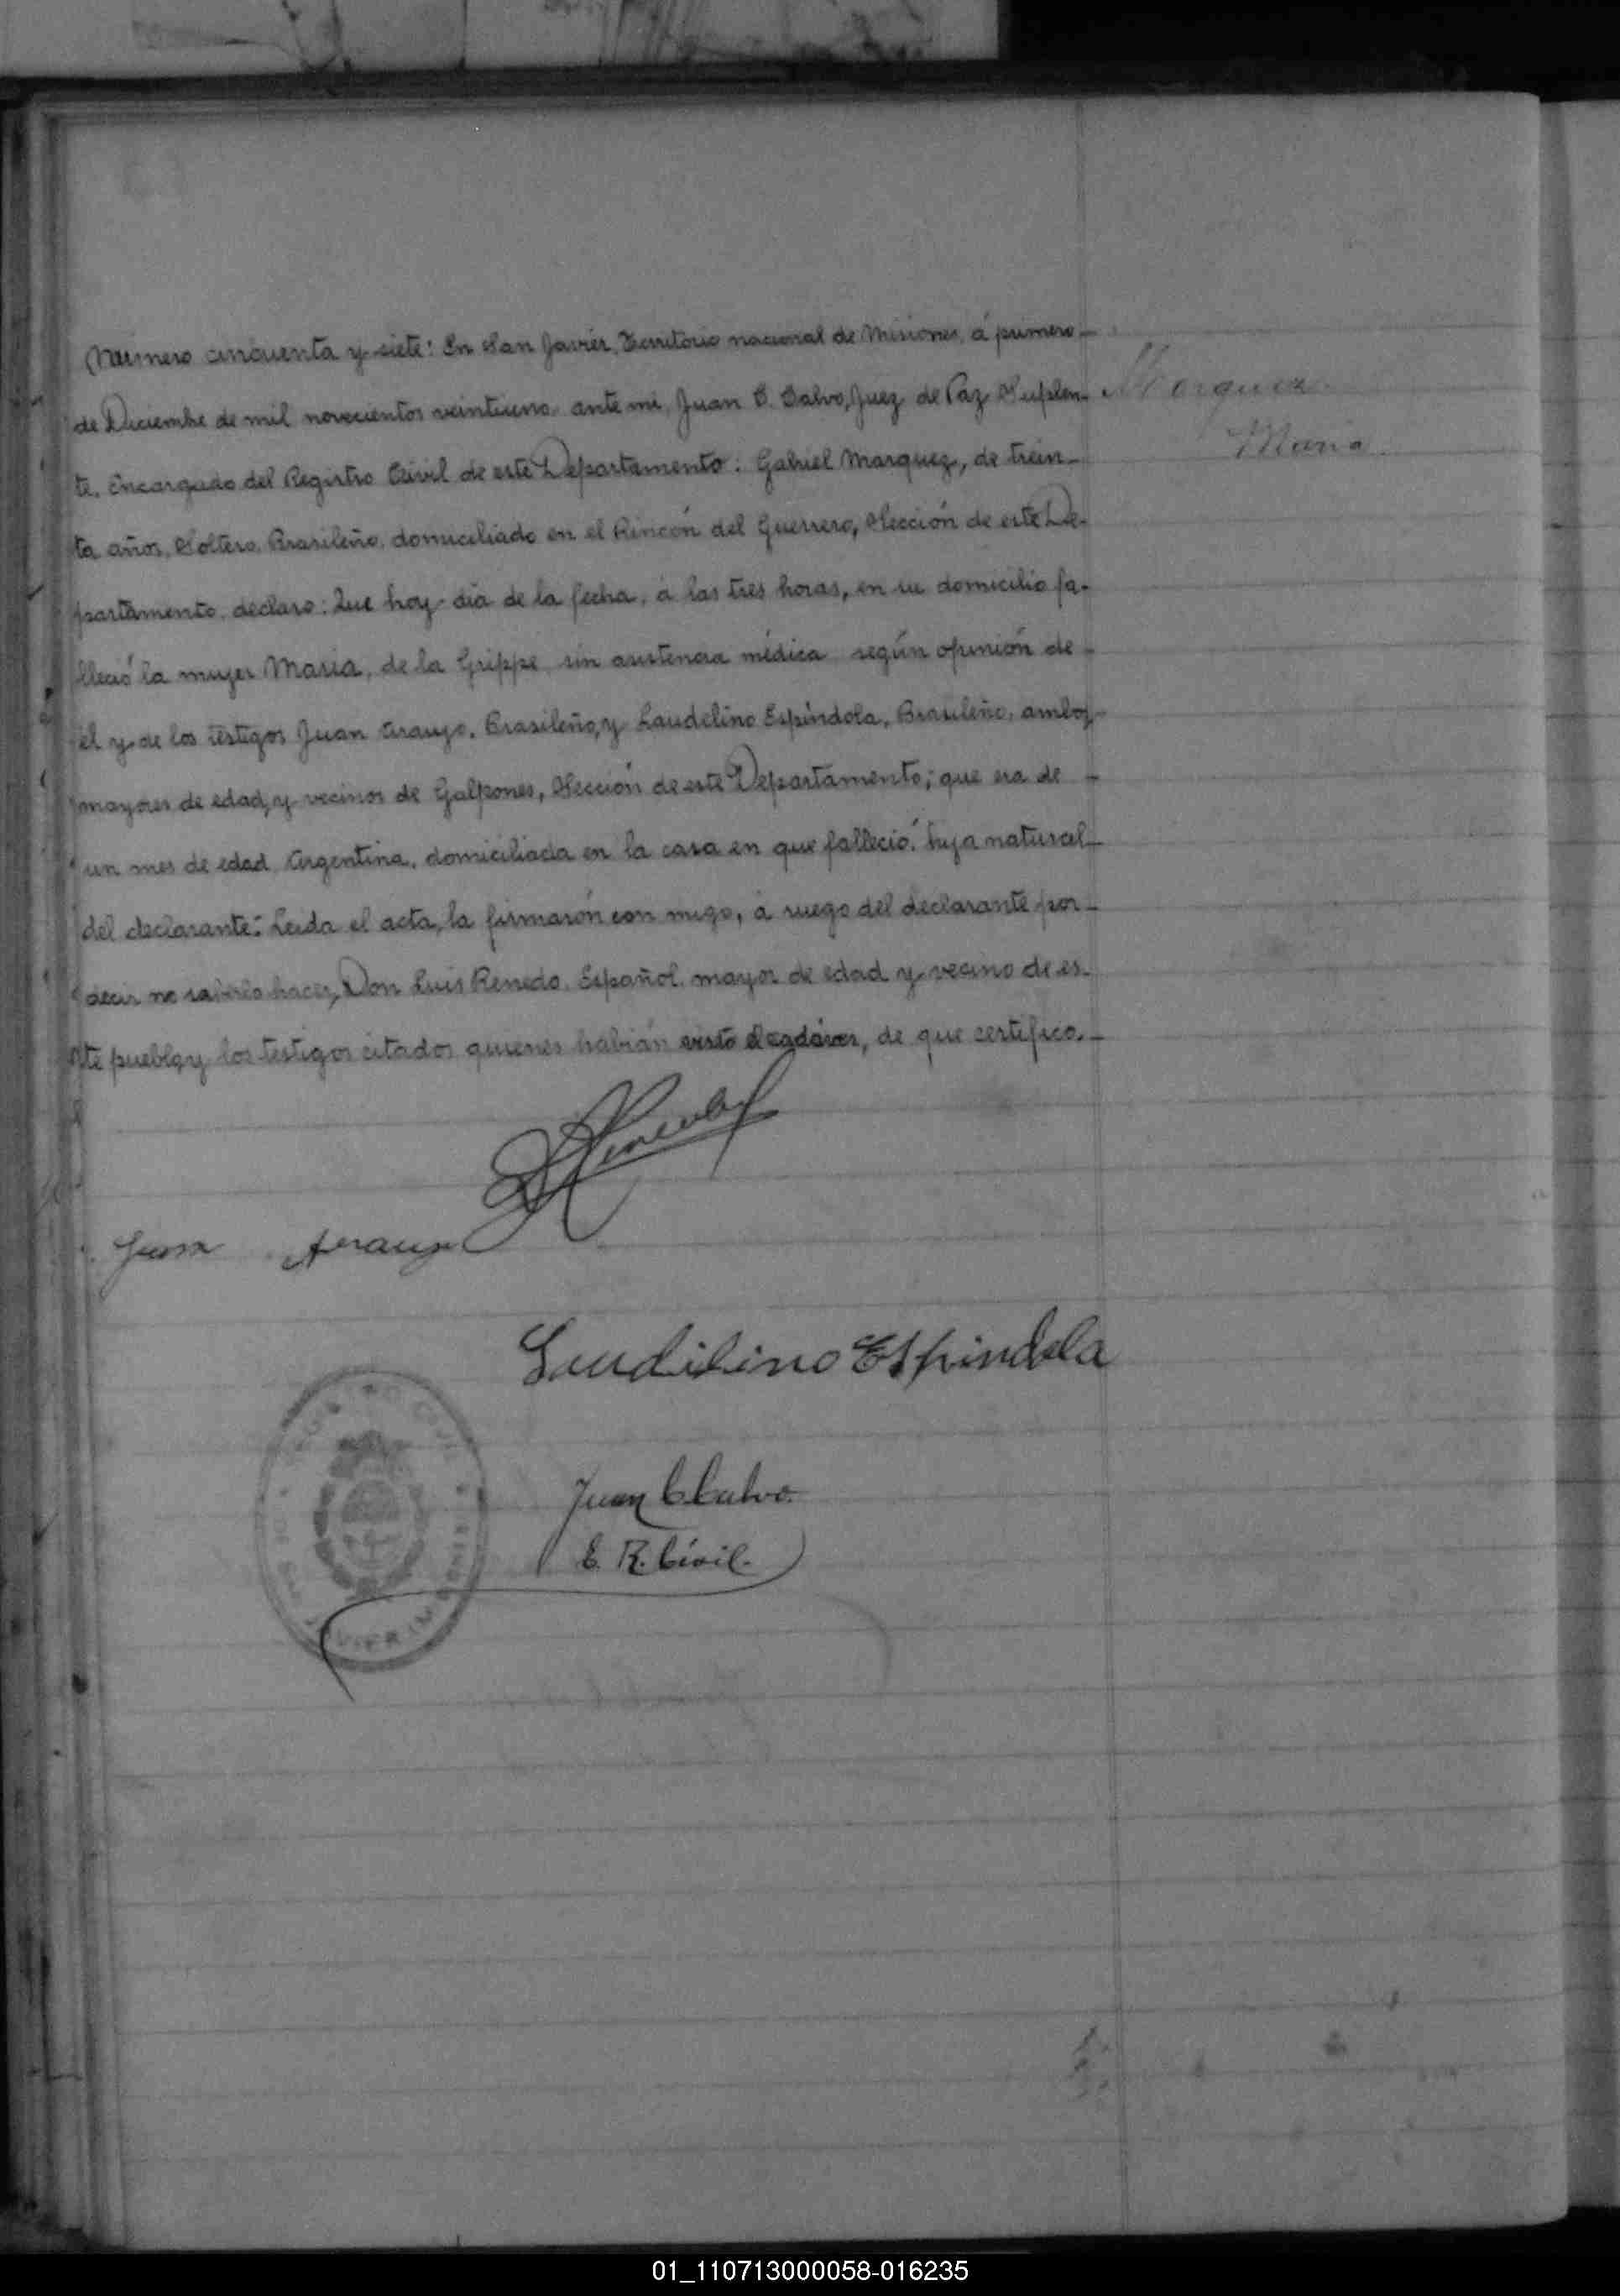 Número cincuenta y siete: En San Javier, Territorio nacional de Misiones, á primero
de Diciembre de mil novecientos veintiuno, ante mi, Juan C. Calvo, Juez de Paz Suplen-
te, Encargado del Registro Civil de este Departamento: Gabriel Marquez, de trein-
ta años, Soltero, Brasileño, domiciliado en el Rincón del Guerrero, Sección de este De-
partamento, declaro: Que hoy dia de la fecha, á las tres horas, en su domicilio fa-
lleció la mujer Maria, de la Grippe, sin asistencia médica según opinión de
él y de los testigos Juan Araujo, Brasileño, y Laudelino Espíndola, Brasileño, ambos
mayores de edad, y vecinos de Galpones, Sección de este Departamento; que era de
un mes de edad, Argentina, domiciliada en la casa en que falleció: hija natural
del declarante: Leida el acta, la firmarón con migo, á ruego del declarante por
decir no saberlo hacer, Don Luis Renedo, Español, mayor de edad y vecino de es-
te pueblo, y los testigos citados quienes habián visto el cadáver, de que certifico.
Marquez
Maria
Juan Araujo
Laudilino Espindola
Juan C. Calvo
E. R. Civil.
01_110713000058-016235